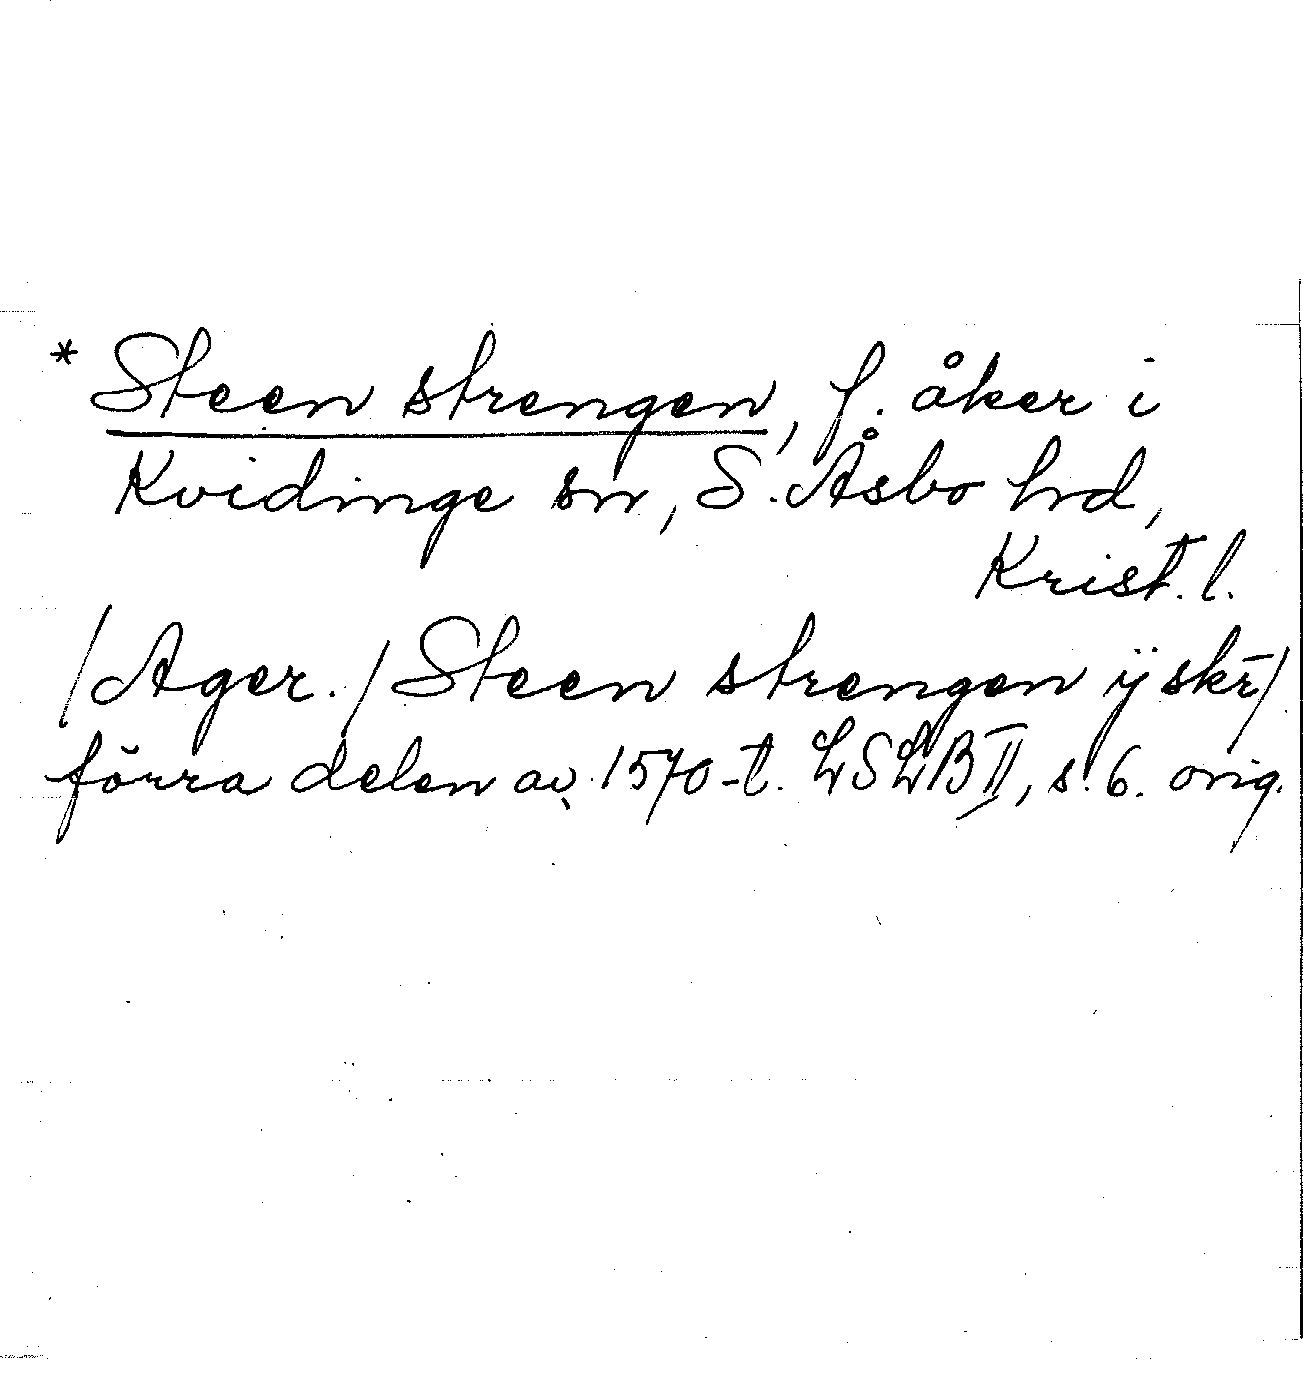 * Steen strengen, f. åker i
Kvidinge sn, S. Åsbo hd,
Krist. l.
/Ager./ Steen strengen ÿ skr̄/
förra delen av 1570-t. LSLB II, s. 6. orig.